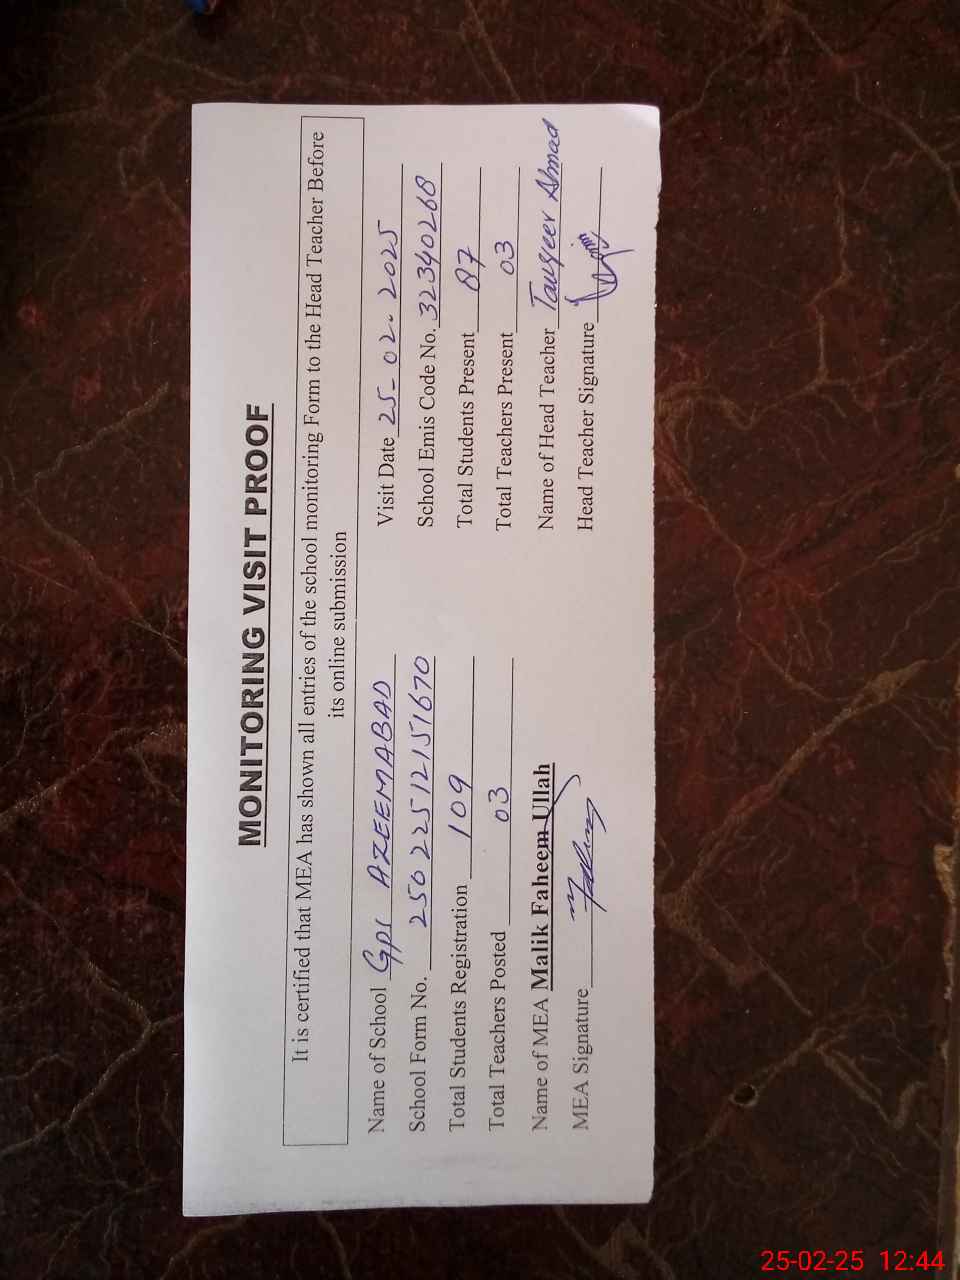 MONITORING VISIT PROOF
It is certified that MEA has shown all entries of the school monitoring Form to the Head Teacher Before
its online submission
Name of School GPS AZEEMABAD Visit Date 25-02-2025
School Form No. 25022512151670 School Emis Code No. 32340268
Total Students Registration 109 Total Students Present 87
Total Teachers Posted 03 Total Teachers Present 03
Name of MEA Malik Faheem Ullah Name of Head Teacher Tauqeer Ahmad
MEA Signature Head Teacher Signature
25-02-25 12:44